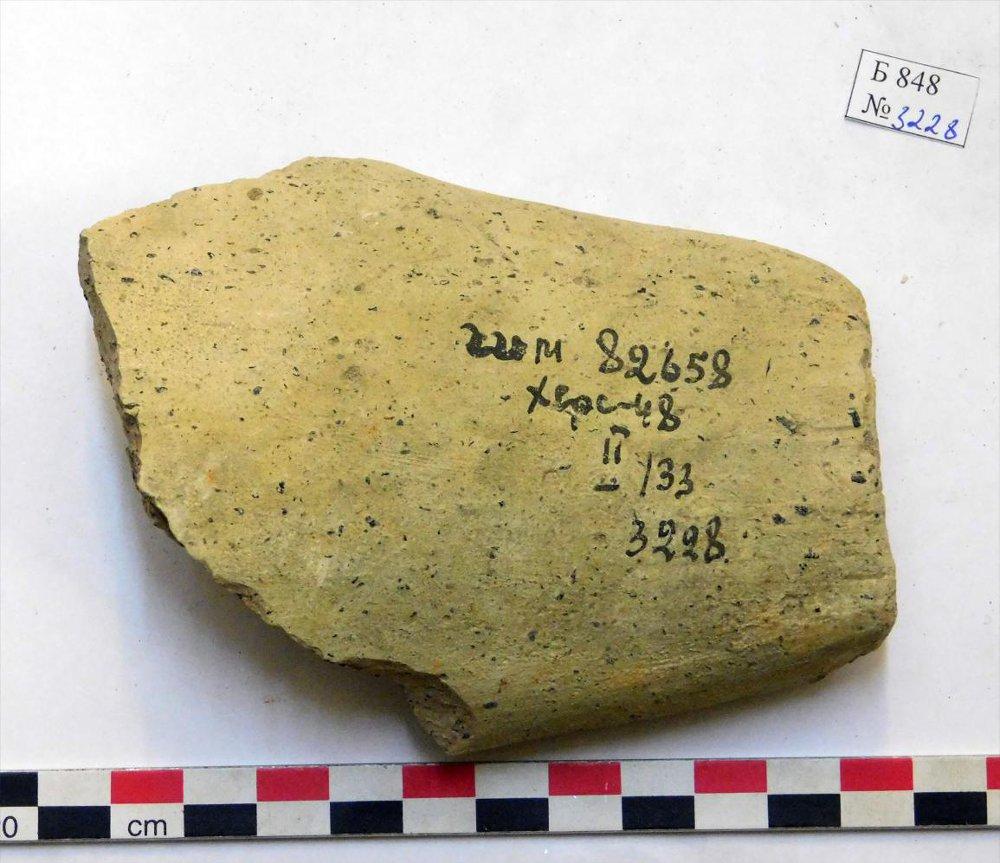 Б 848
№ 3228
ггом 82658
Херс-48
II
/33
3228
0
cm